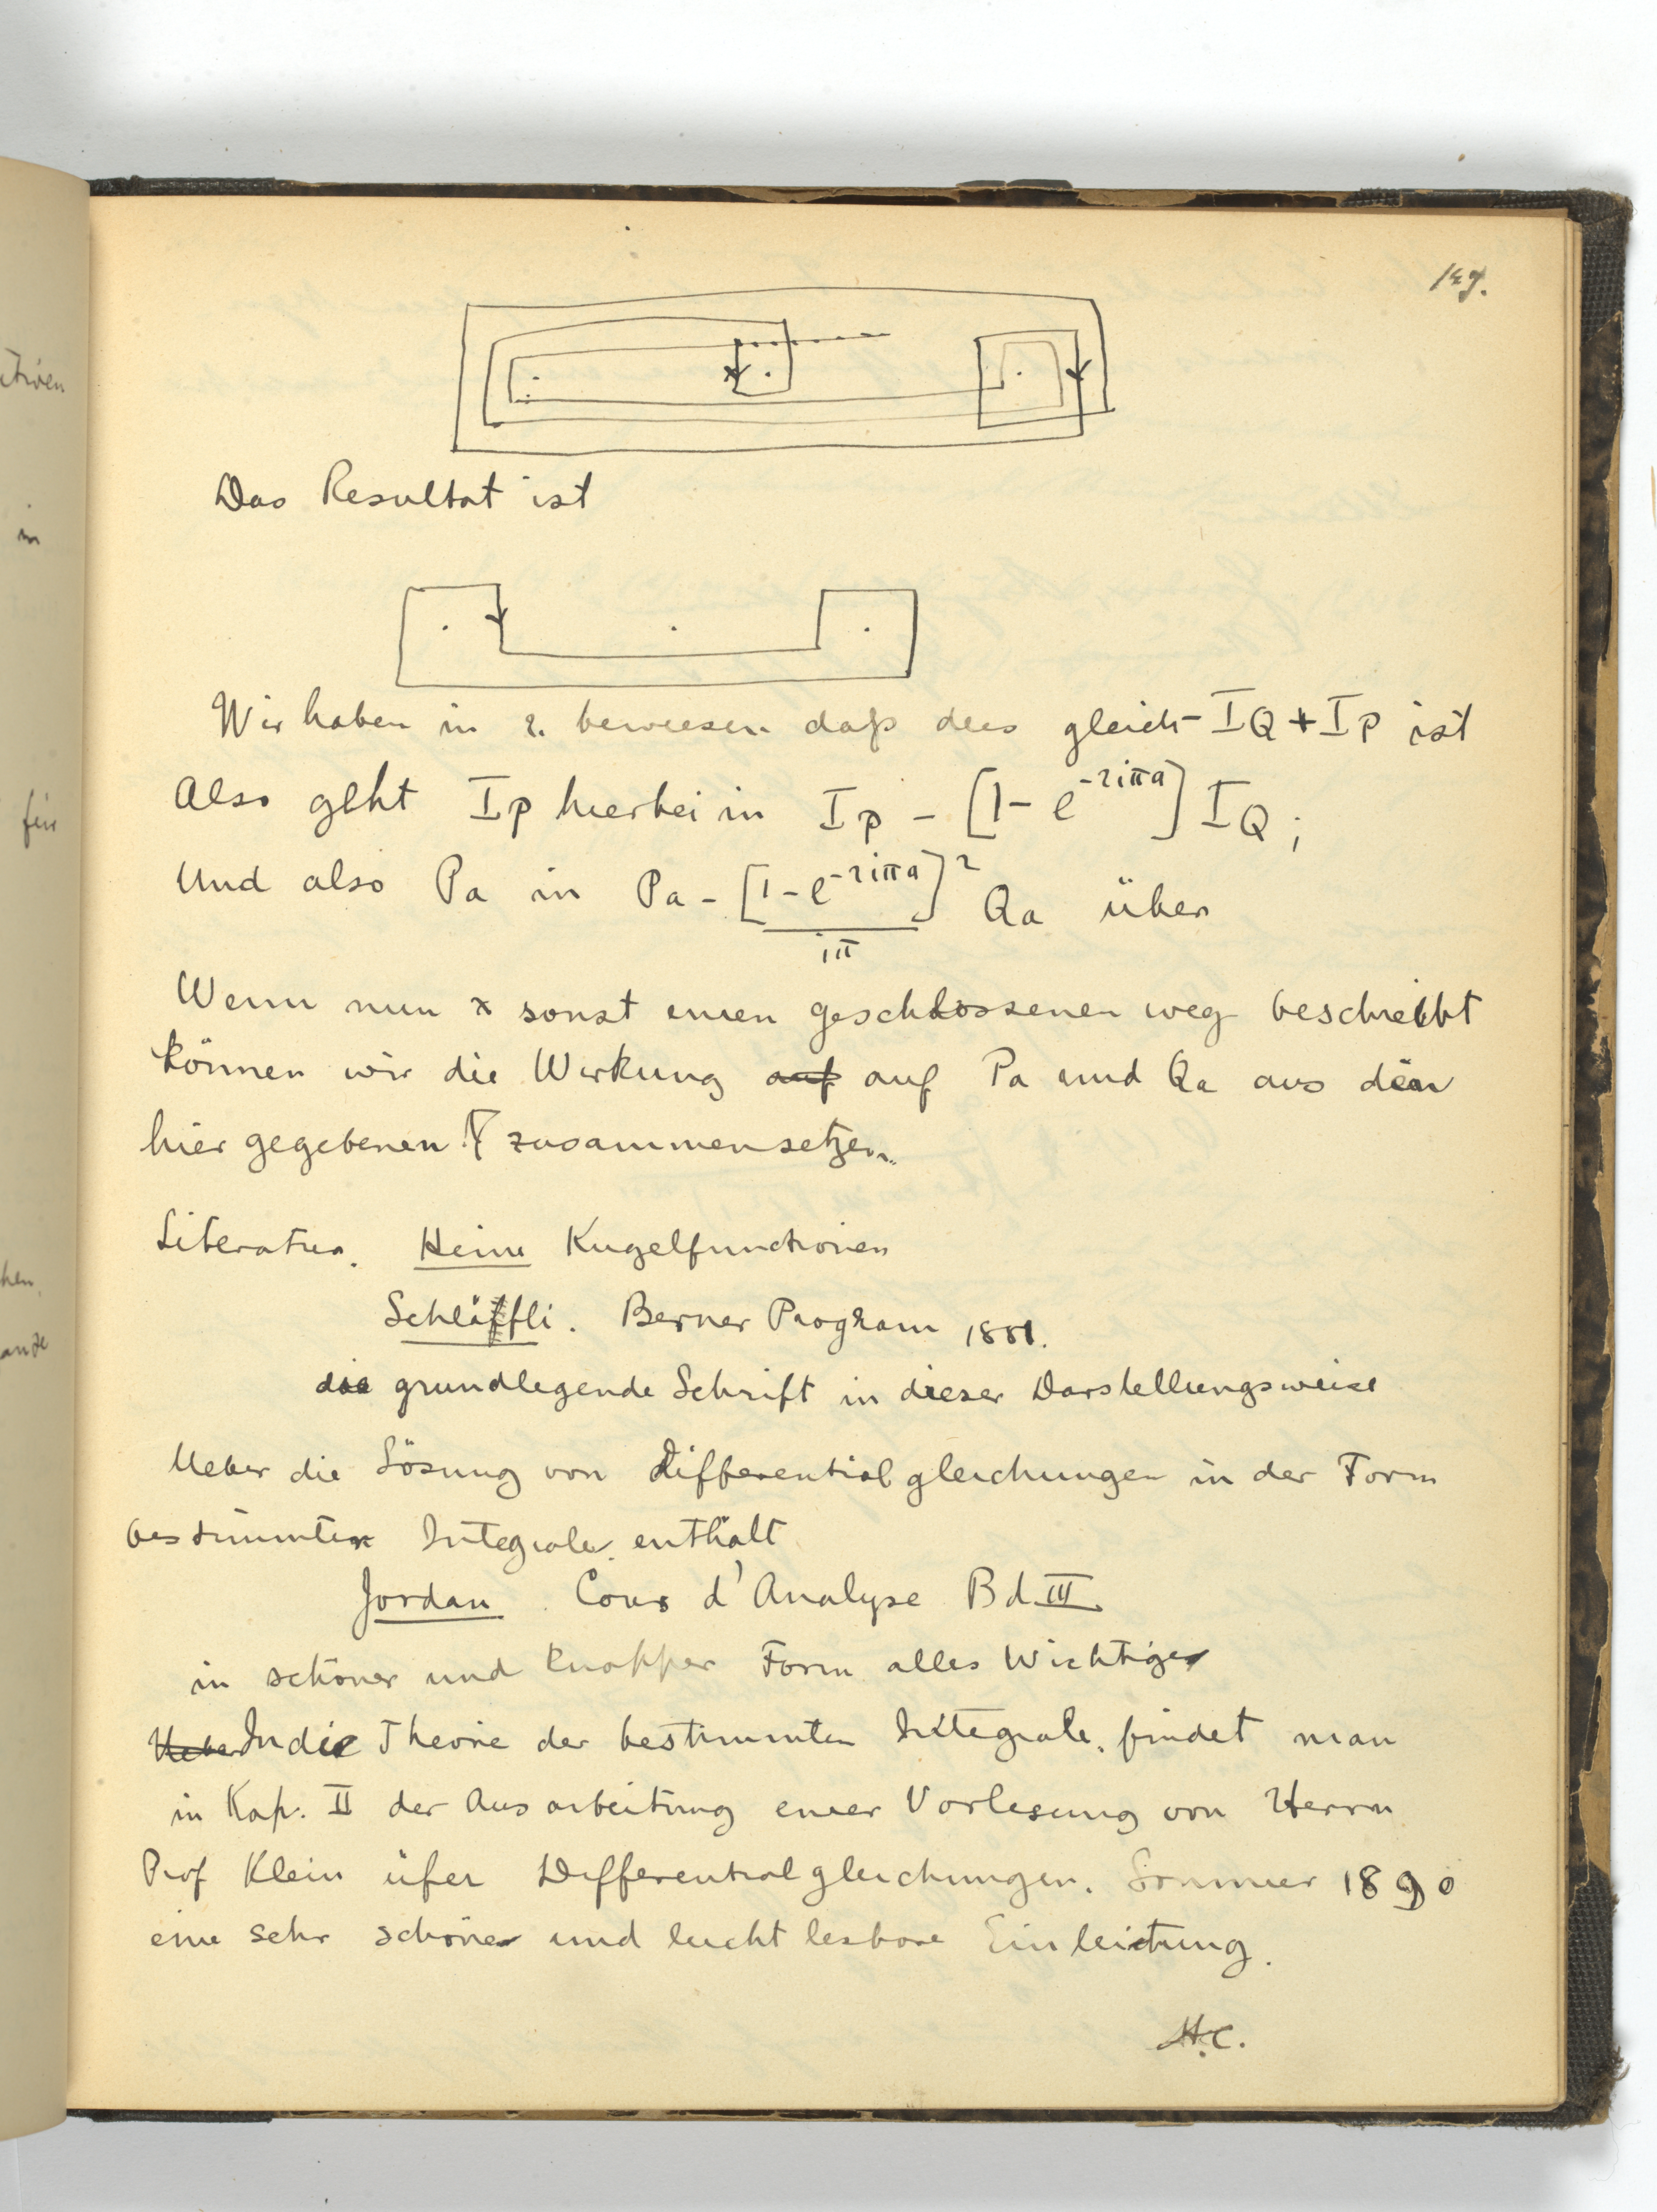 147.
Das Resultat ist
Wir haben in 2. bewiesen daß dies gleich - I_Q + I_P ist
Also geht I_P hierbei in I_P - [1 - e^{-2iπa}] I_Q;
Und also P_a in P_a - [1 - e^{-2iπa}]^2 / iπ Q_a über
Wenn nun x sonst einen geschlossenen weg beschreibt
können wir die Wirkung auf auf Pa und Qa aus den
hier gegebenen zusammensetzen.
Literatur. Heine Kugelfunctionen
Schläfli. Berner Program 1881.
die grundlegende Schrift in dieser Darstellungsweise
Ueber die Lösung von Differentialgleichungen in der Form
bestimmter Integrale enthält
Jordan Cours d'Analyse Bd. III
in schöner und knapper Form alles Wichtige
Ueber In die Theorie der bestimmten Integrale, findet man
in Kap. II der Ausarbeitung einer Vorlesung von Herrn
Prof Klein über Differentialgleichungen. Sommer 1890
eine sehr schöne und leicht lesbare Einleitung.
H.C.
ativen
in
für
hen.